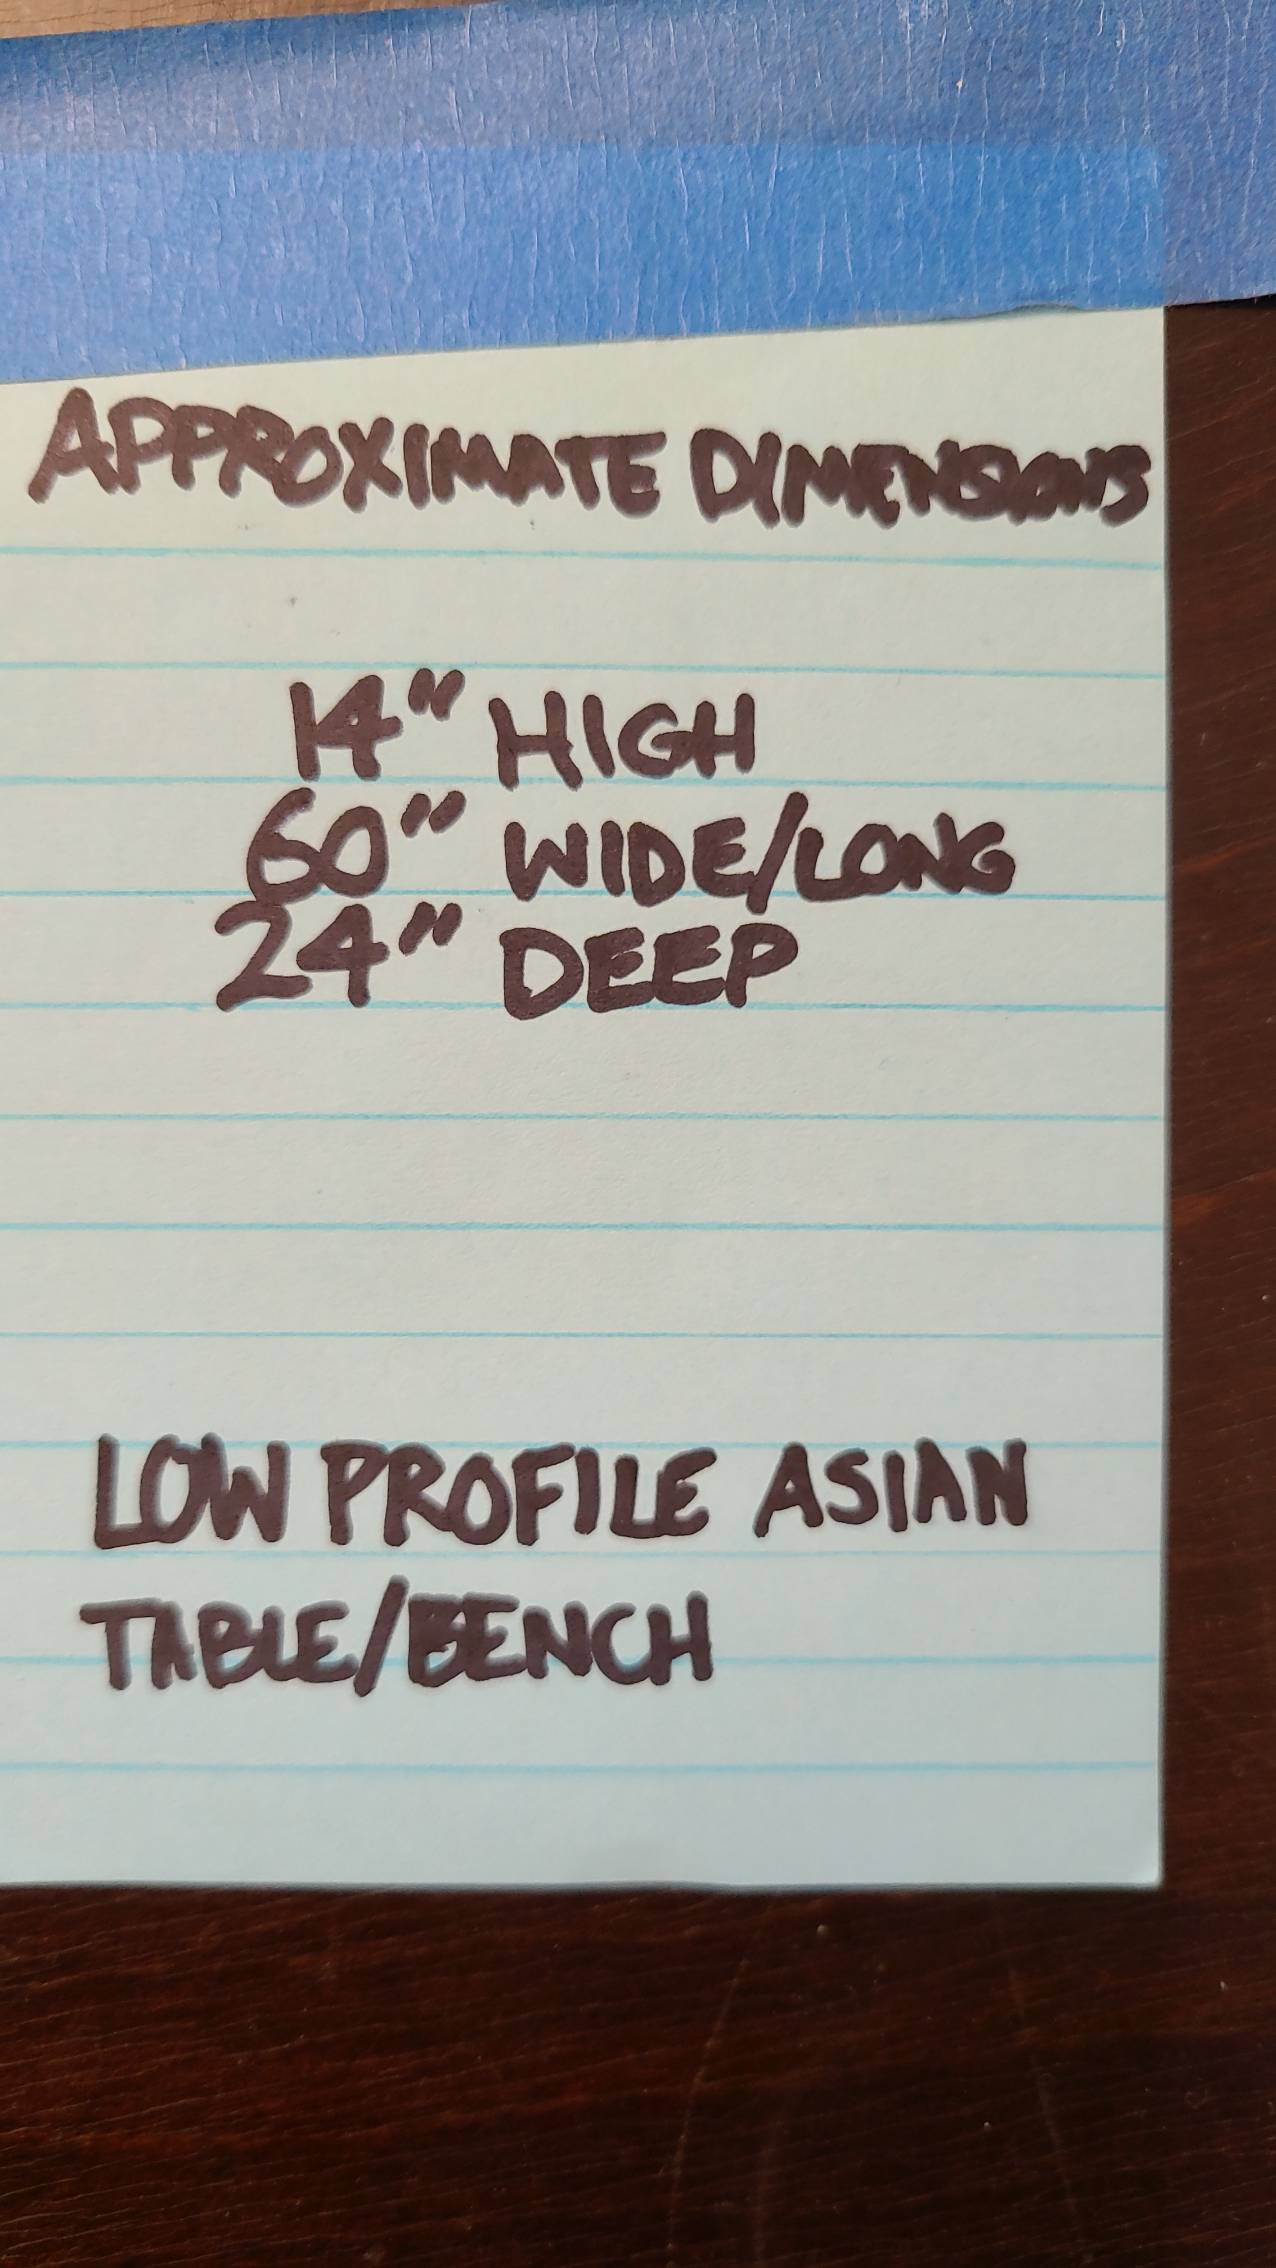 APPROXIMATE DIMENSIONS
14" HIGH
60" WIDE/LONG
24" DEEP
LOW PROFILE ASIAN
TABLE/BENCH